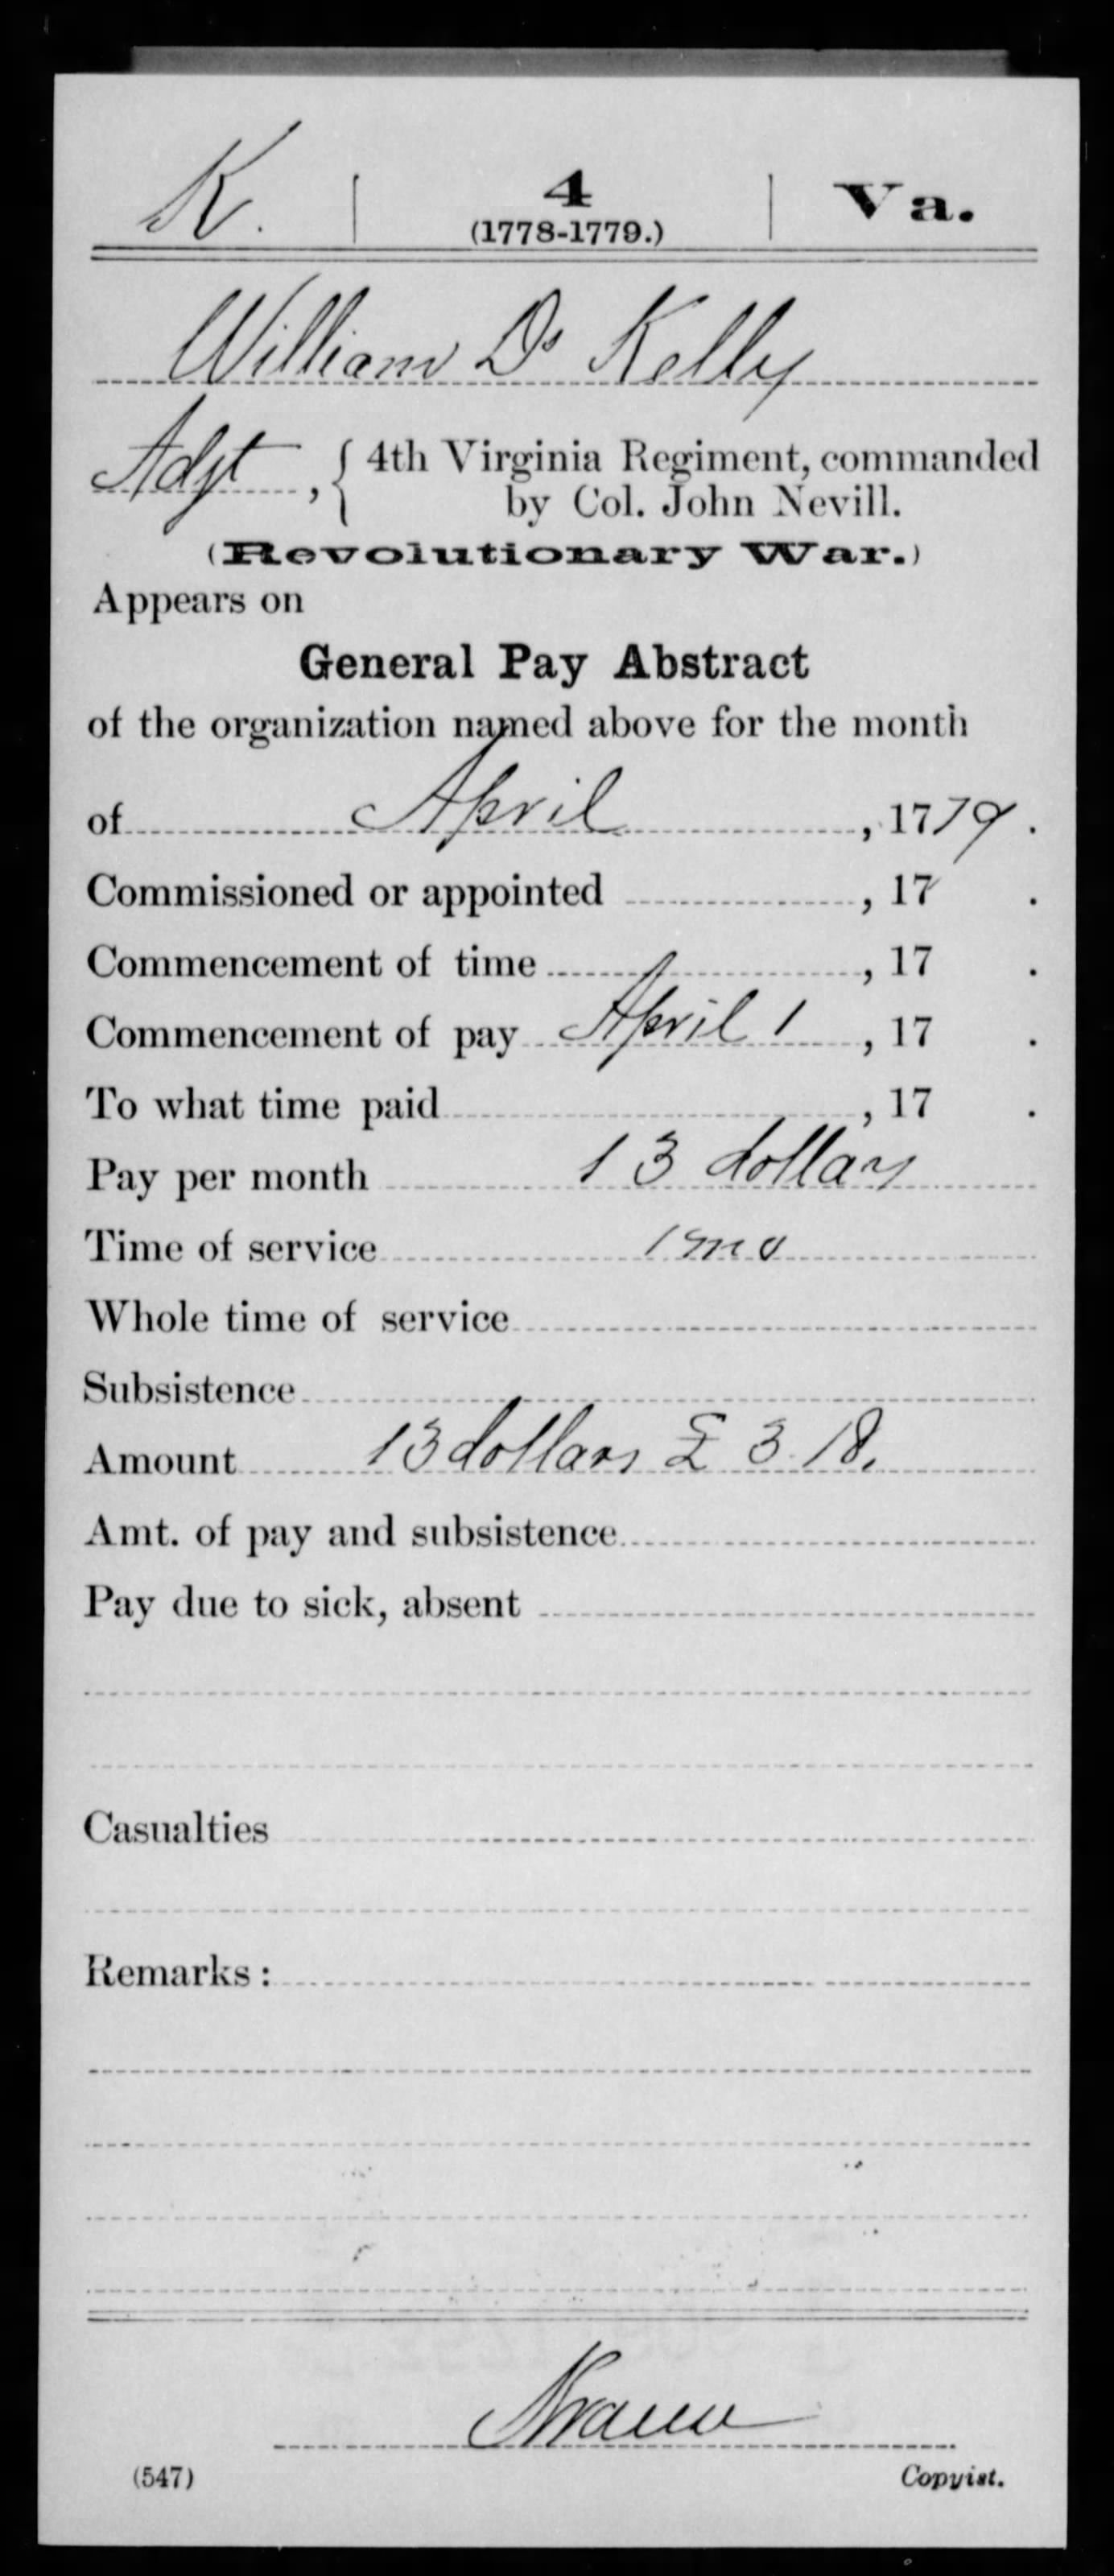 K. | 4 | Va.
(1778-1779.)
William D. Kelly
Adjt, { 4th Virginia Regiment, commanded
by Col. John Nevill.
(Revolutionary War.)
Appears on
General Pay Abstract
of the organization named above for the month
of April, 1779.
Commissioned or appointed , 17 .
Commencement of time , 17 .
Commencement of pay April 1, 17 .
To what time paid , 17 .
Pay per month 13 dollars
Time of service 1 mo
Whole time of service
Subsistence
Amount 13 dollars £ 3. 18.
Amt. of pay and subsistence
Pay due to sick, absent
Casualties
Remarks :
(547) Copyist.